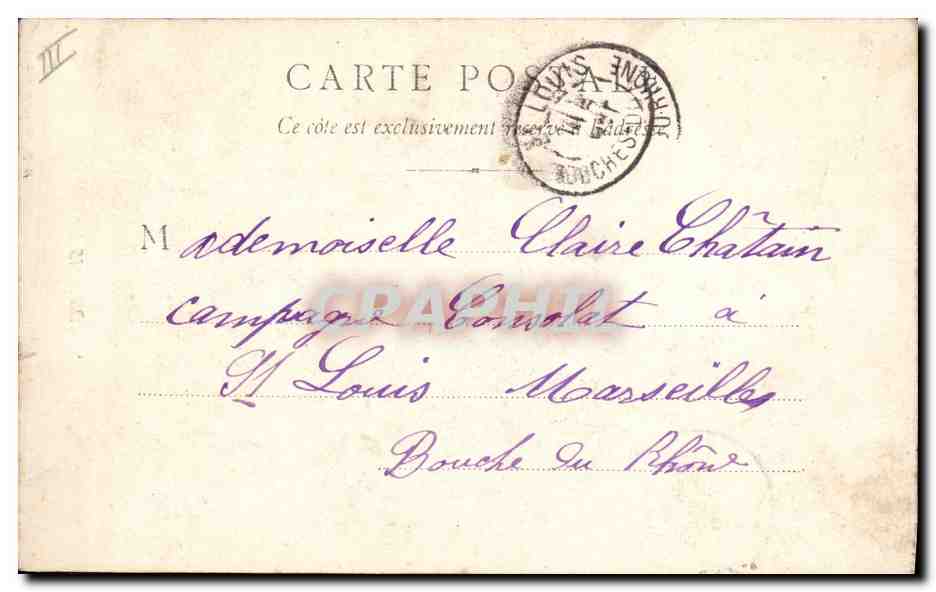 III
CARTE POSTALE
Ce côté est exclusivement réservé à l'adresse
ST LOUIS BOUCHES-DU-RHONE
Mademoiselle Claire Châtain
CPARHIL
campagne Consolat à
St Louis Marseilles
Bouche du Rhône